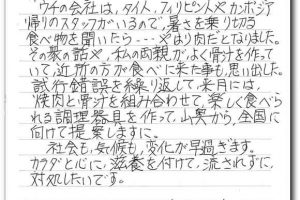 「ウチの会社は、タイ人、フィリピン人やカンボジア
帰りのスタッフがいるので、暑さを乗り切る
食べ物を聞いたら・・・やはり肉だとなりました。
その暑の話や、私の両親がよく骨汁を作って
いて、近所の方が食べに来た事も思い出した。
試行錯誤を繰り返して、来月には、
焼肉と骨汁を組み合わせて、楽しく食べら
れる調理器具を作って、山奥から、全国に
向けて提案しますに。
社会も、気候も、変化が早過ぎます。
カラダと心に、滋養を付けて、流されずに、
対処したいです。